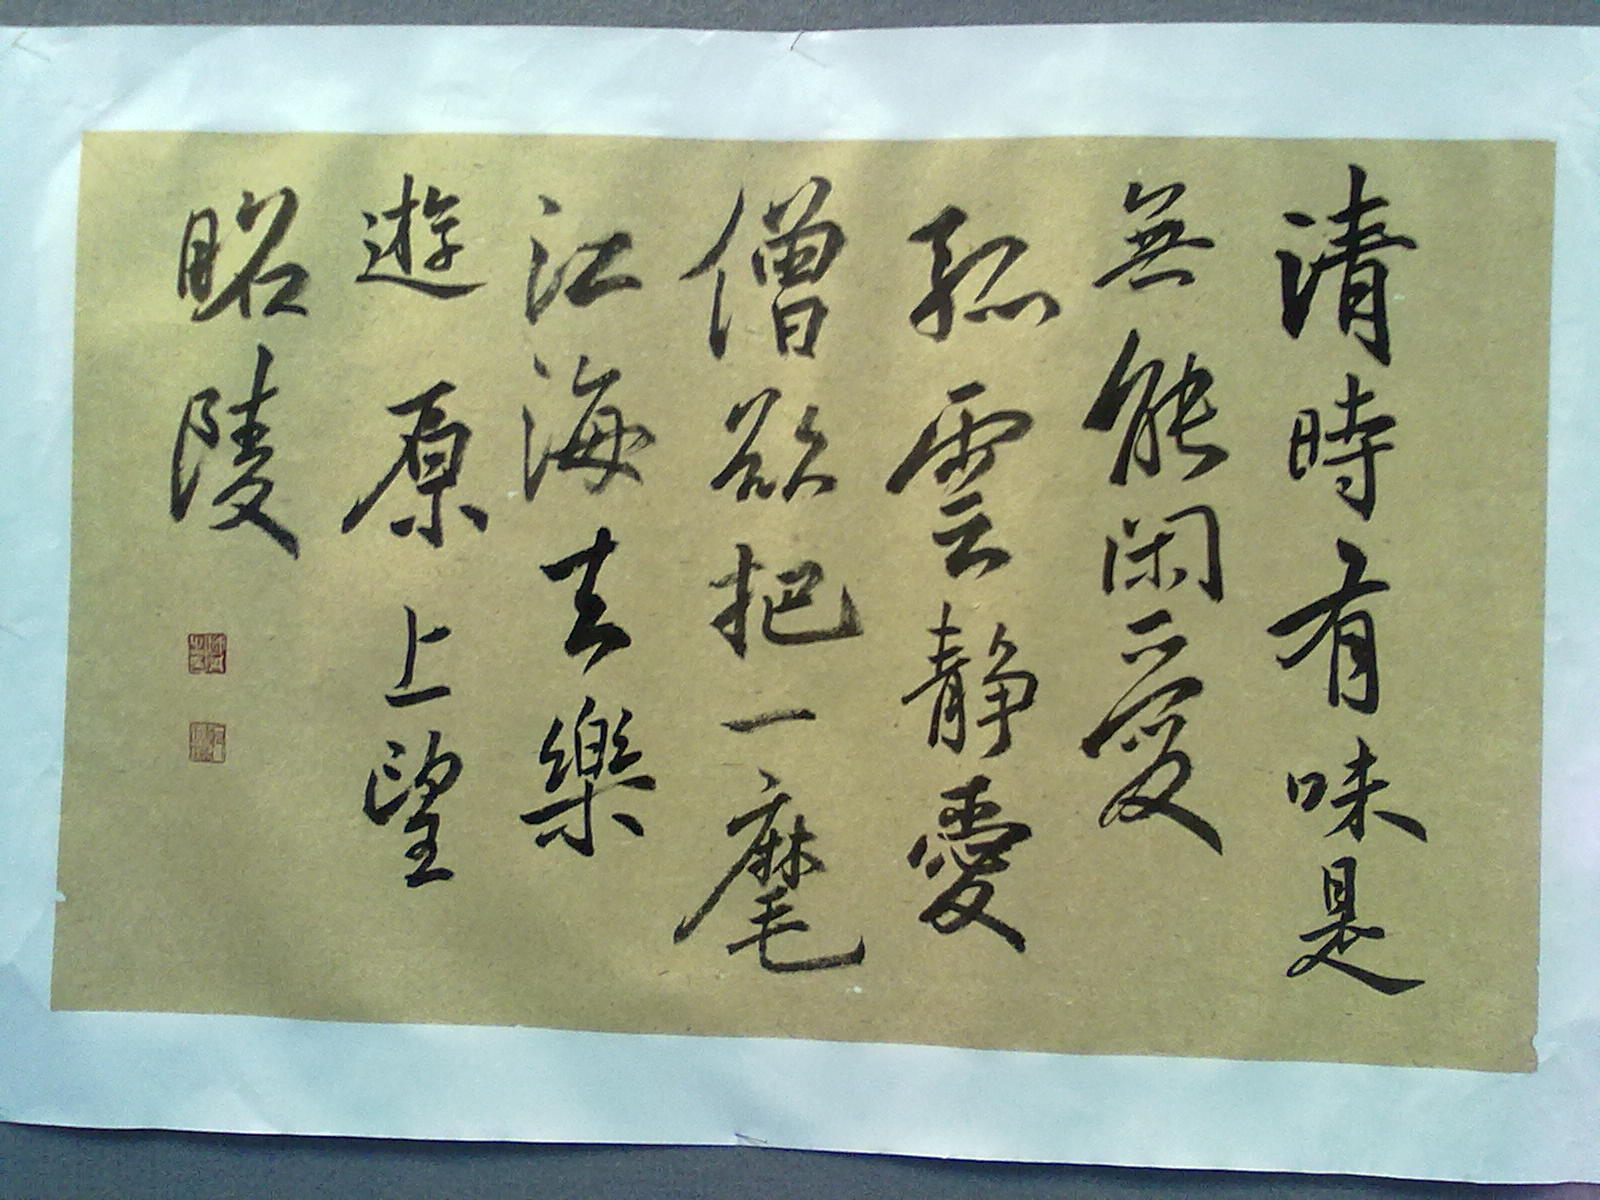 清時有味是
無能閑愛
孤雲静愛
僧欲把一麾
江海去樂
遊原上望
昭陵